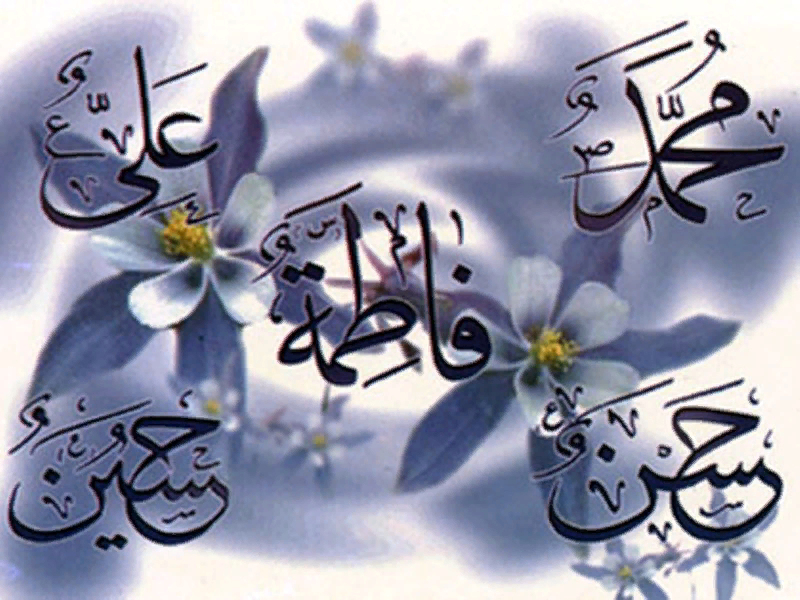 محمد
علي
فاطمة
حسن
حسين